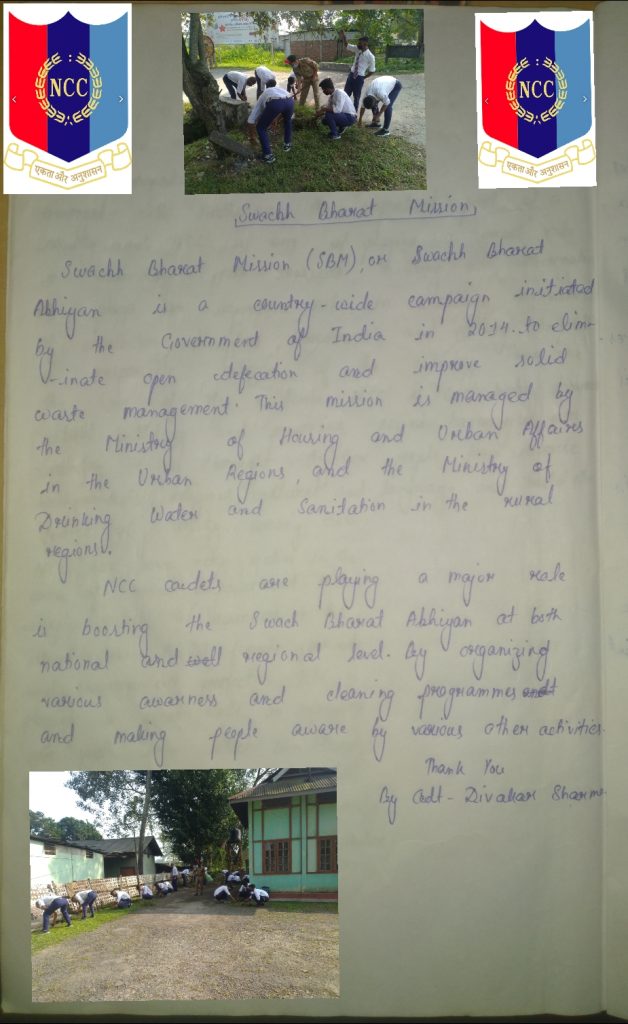 NCC
एकता और अनुशासन
NCC
एकता और अनुशासन
Swachh Bharat Mission
Swachh Bharat Mission (SBM), or Swachh Bharat
Abhiyan is a country-wide campaign initiated
by the Government of India in 2014. to elim-
-inate open defecation and improve solid
waste management. This mission is managed by
the Ministry of Housing and Urban Affaires
in the Urban Regions, and the Ministry of
Drinking Water and Sanitation in the rural
regions.
NCC cadets are playing a major role
is boosting the Swach Bharat Abhiyan at both
national and regional level. By organizing
various awarness and cleaning programmes
and making people aware by various other activities.
Thank You
By Cdt - Divakar Sharma